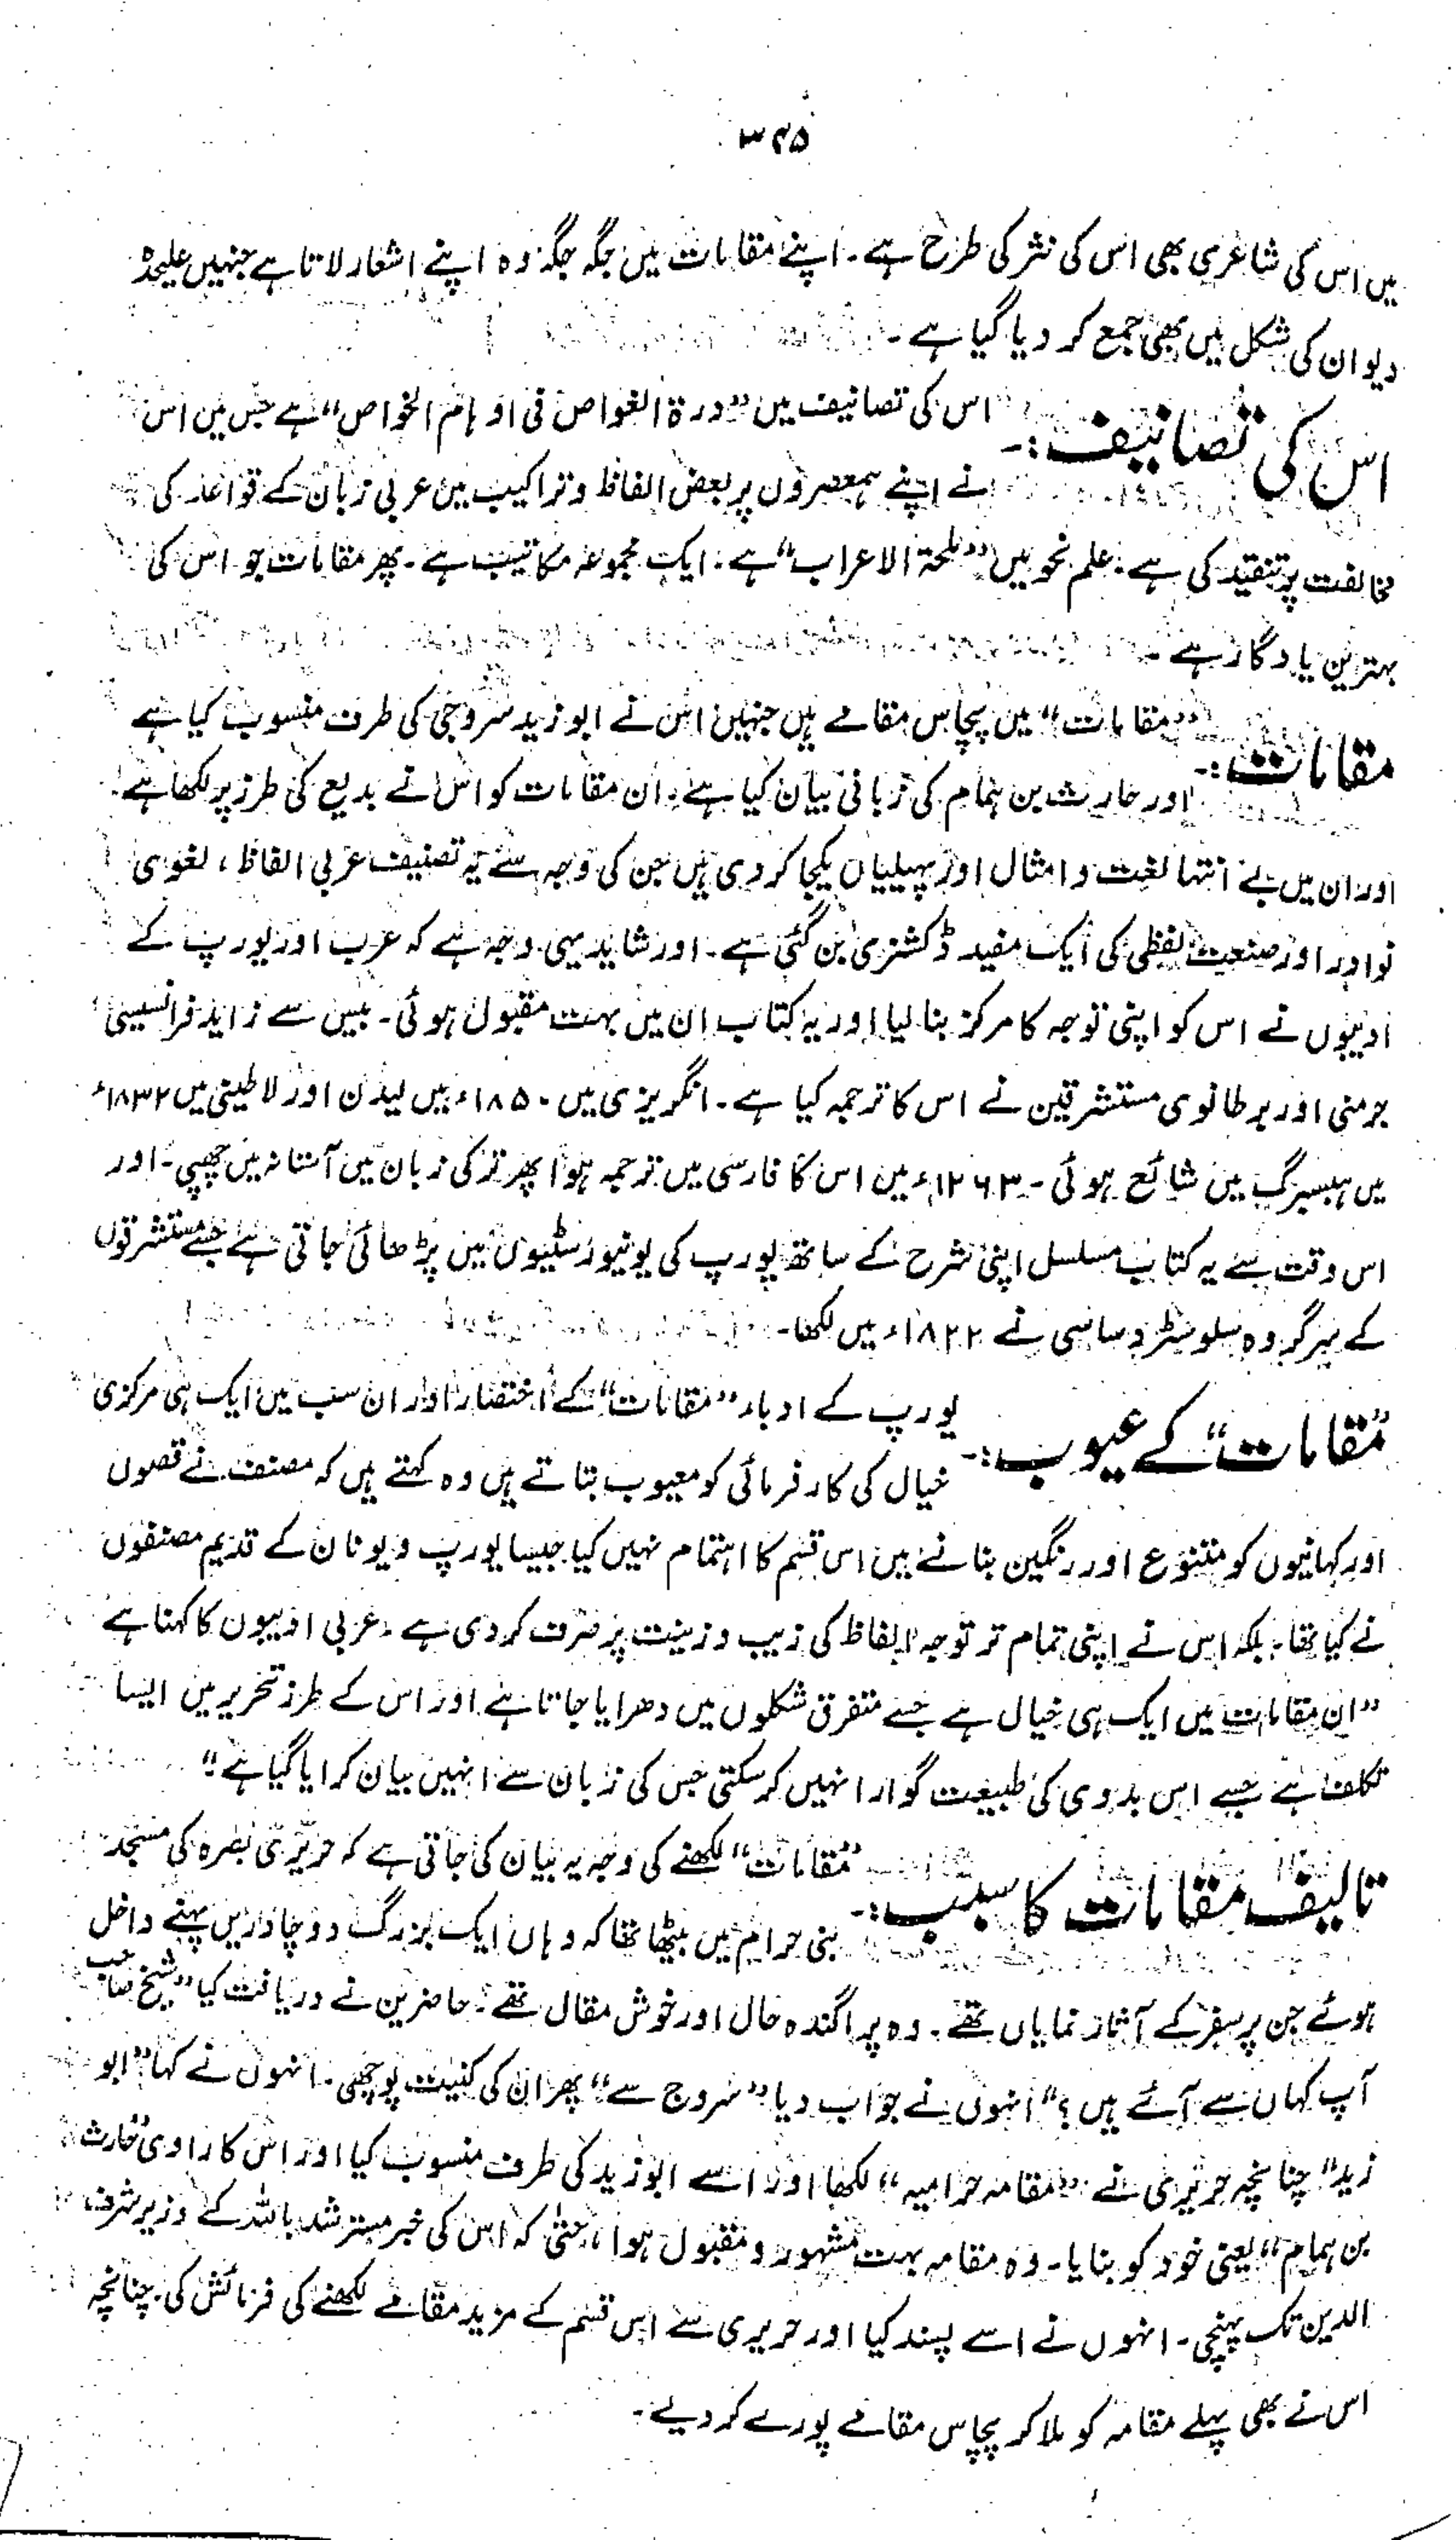 ۳۴۵
میں اس کی شاعری بھی اس کی نثر کی طرح ہے۔ اپنے مقامات میں جگہ جگہ وہ اپنے اشعار لاتا ہے جنہیں علیحدہ
دیوان کی شکل میں بھی جمع کر دیا گیا ہے۔
اس کی تصانیف:۔ اس کی تصانیف میں "درۃ الغواص فی اوہام الخواص" ہے جس میں اس
نے اپنے ہمعصروں پر بعض الفاظ و تراکیب میں عربی زبان کے قواعد کی
مخالفت پر تنقید کی ہے۔ علم نحو میں "ملحۃ الاعراب" ہے۔ ایک مجموعہ مکاتیب ہے۔ پھر مقامات جو اس کی
بہترین یادگار ہے۔
مقامات:۔ "مقامات" میں پچاس مقامے ہیں جنہیں اس نے ابو زید سروجی کی طرف منسوب کیا ہے
اور حارث بن ہمام کی زبانی بیان کیا ہے۔ ان مقامات کو اس نے بدیع کی طرز پر لکھا ہے۔
اور ان میں بے انتہا لغت و امثال اور پہیلیاں یکجا کر دی ہیں جن کی وجہ سے یہ تصنیف عربی الفاظ، لغوی
نوادر اور صنعت لفظی کی ایک مفید ڈکشنری بن گئی ہے۔ اور شاید یہی وجہ ہے کہ عرب اور یورپ کے
ادیبوں نے اس کو اپنی توجہ کا مرکز بنا لیا اور یہ کتاب ان میں بہت مقبول ہوئی۔ بیس سے زاید فرانسیسی
جرمنی اور برطانوی مستشرقین نے اس کا ترجمہ کیا ہے۔ انگریزی میں ۱۸۵۰ء میں لیدن اور لاطینی میں ۱۸۳۲ء
میں ہیسبرگ میں شائع ہوئی۔ ۱۲۶۳ء میں اس کا فارسی میں ترجمہ ہوا پھر ترکی زبان میں آستانہ میں چھپی۔ اور
اس وقت سے یہ کتاب مسلسل اپنی شرح کے ساتھ یورپ کی یونیورسٹیوں میں پڑھائی جاتی ہے جسے مستشرقوں
کے سرگروہ سلوسٹر دساسی نے ۱۸۲۲ء میں لکھا۔
"مقامات" کے عیوب:۔ یورپ کے ادباء "مقامات" کے اختصار اور ان سب میں ایک ہی مرکزی
خیال کی کار فرمائی کو معیوب بتاتے ہیں وہ کہتے ہیں کہ مصنف نے قصوں
اور کہانیوں کو متنوع اور رنگین بنانے میں اس قسم کا اہتمام نہیں کیا جیسا یورپ و یونان کے قدیم مصنفوں
نے کیا تھا۔ بلکہ اس نے اپنی تمام تر توجہ الفاظ کی زیب و زینت پر صرف کر دی ہے۔ عربی ادیبوں کا کہنا ہے
"ان مقامات میں ایک ہی خیال ہے جسے متفرق شکلوں میں دھرایا جاتا ہے اور اس کے طرز تحریر میں ایسا
تکلف ہے جسے اس بدوی کی طبیعت گوارا نہیں کر سکتی جس کی زبان سے انہیں بیان کرایا گیا ہے"
تالیف مقامات کا سبب:۔ "مقامات" لکھنے کی وجہ یہ بیان کی جاتی ہے کہ حریری بصرہ کی مسجد
بنی حرام میں بیٹھا تھا کہ وہاں ایک بزرگ دو چادریں پہنے داخل
ہوئے جن پر سفر کے آثار نمایاں تھے۔ وہ پراگندہ حال اور خوش مقال تھے۔ حاضرین نے دریافت کیا "شیخ صاحب
آپ کہاں سے آئے ہیں؟" انہوں نے جواب دیا "سروج سے" پھر ان کی کنیت پوچھی۔ انہوں نے کہا "ابو
زید" چنانچہ حریری نے "مقامہ حرامیہ" لکھا اور اسے ابو زید کی طرف منسوب کیا اور اس کا راوی "حارث
بن ہمام" یعنی خود کو بنایا۔ وہ مقامہ بہت مشہور و مقبول ہوا، حتیٰ کہ اس کی خبر مسترشد باللہ کے وزیر شرف
الدین تک پہنچی۔ انہوں نے اسے پسند کیا اور حریری سے اس قسم کے مزید مقامے لکھنے کی فرمائش کی۔ چنانچہ
اس نے بھی پہلے مقامہ کو ملا کر پچاس مقامے پورے کر دیے۔